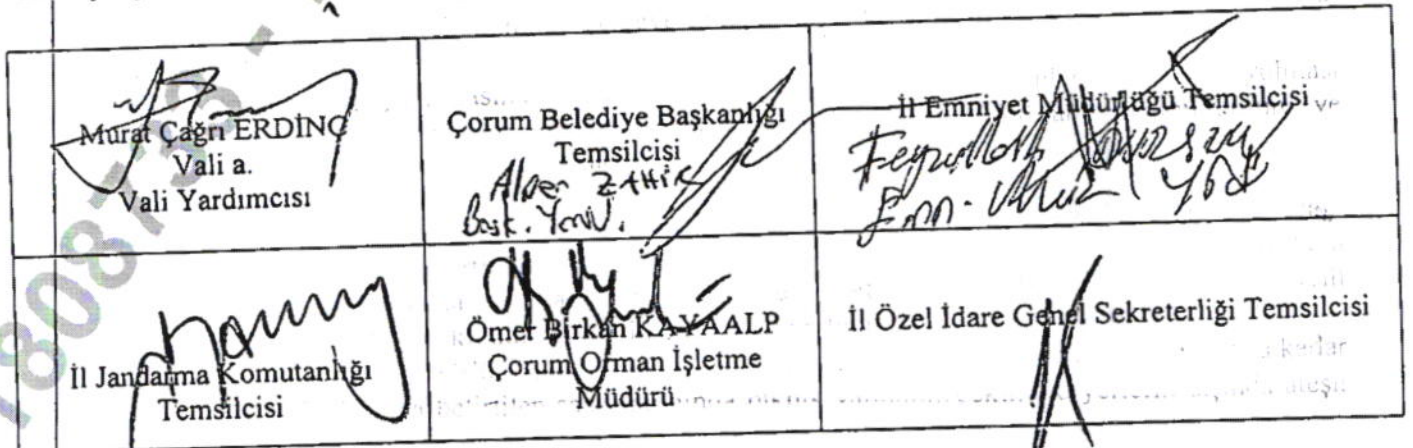 Murat Çağrı ERDİNÇ
Vali a.
Vali Yardımcısı
Çorum Belediye Başkanlığı
Temsilcisi
Alper ZAHİR
Başk. Yrd.
İl Emniyet Müdürlüğü Temsilcisi
Feyzullah
Emn. Müd. Yrd.
İl Jandarma Komutanlığı
Temsilcisi
Ömer Birkan KAYAALP
Çorum Orman İşletme
Müdürü
İl Özel İdare Genel Sekreterliği Temsilcisi